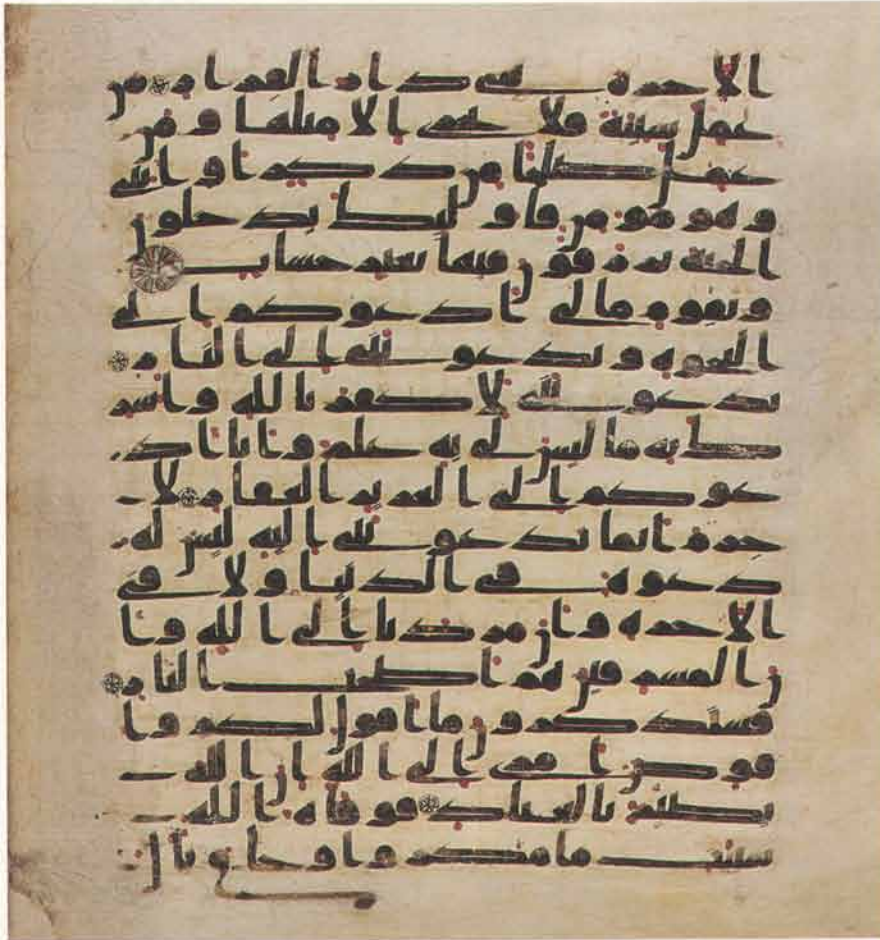 الاخرة هي دار القرار من
عمل سيئة فلا يجزى الا مثلها ومن
عمل صلحا من ذكر او انثى
وهو مومن فاولئك يدخلون
الجنة يرزقون فيها بغير حساب
ويقوم ما لي ادعوكم الى
النجوة وتدعونني الى النار
تدعونني لاكفر بالله واشر
ك به ما ليس لي به علم وانا اد
عوكم الى العزيز الغفار لا
جرم انما تدعونني اليه ليس له
دعوة في الدنيا ولا في
الاخرة وان مردنا الى الله وا
ن المسرفين هم اصحب النار
فستذكرون ما اقول لكم وا
فوض امري الى الله ان الله
بصير بالعباد فوقاه الله
سيات ما مكروا وحاق بال